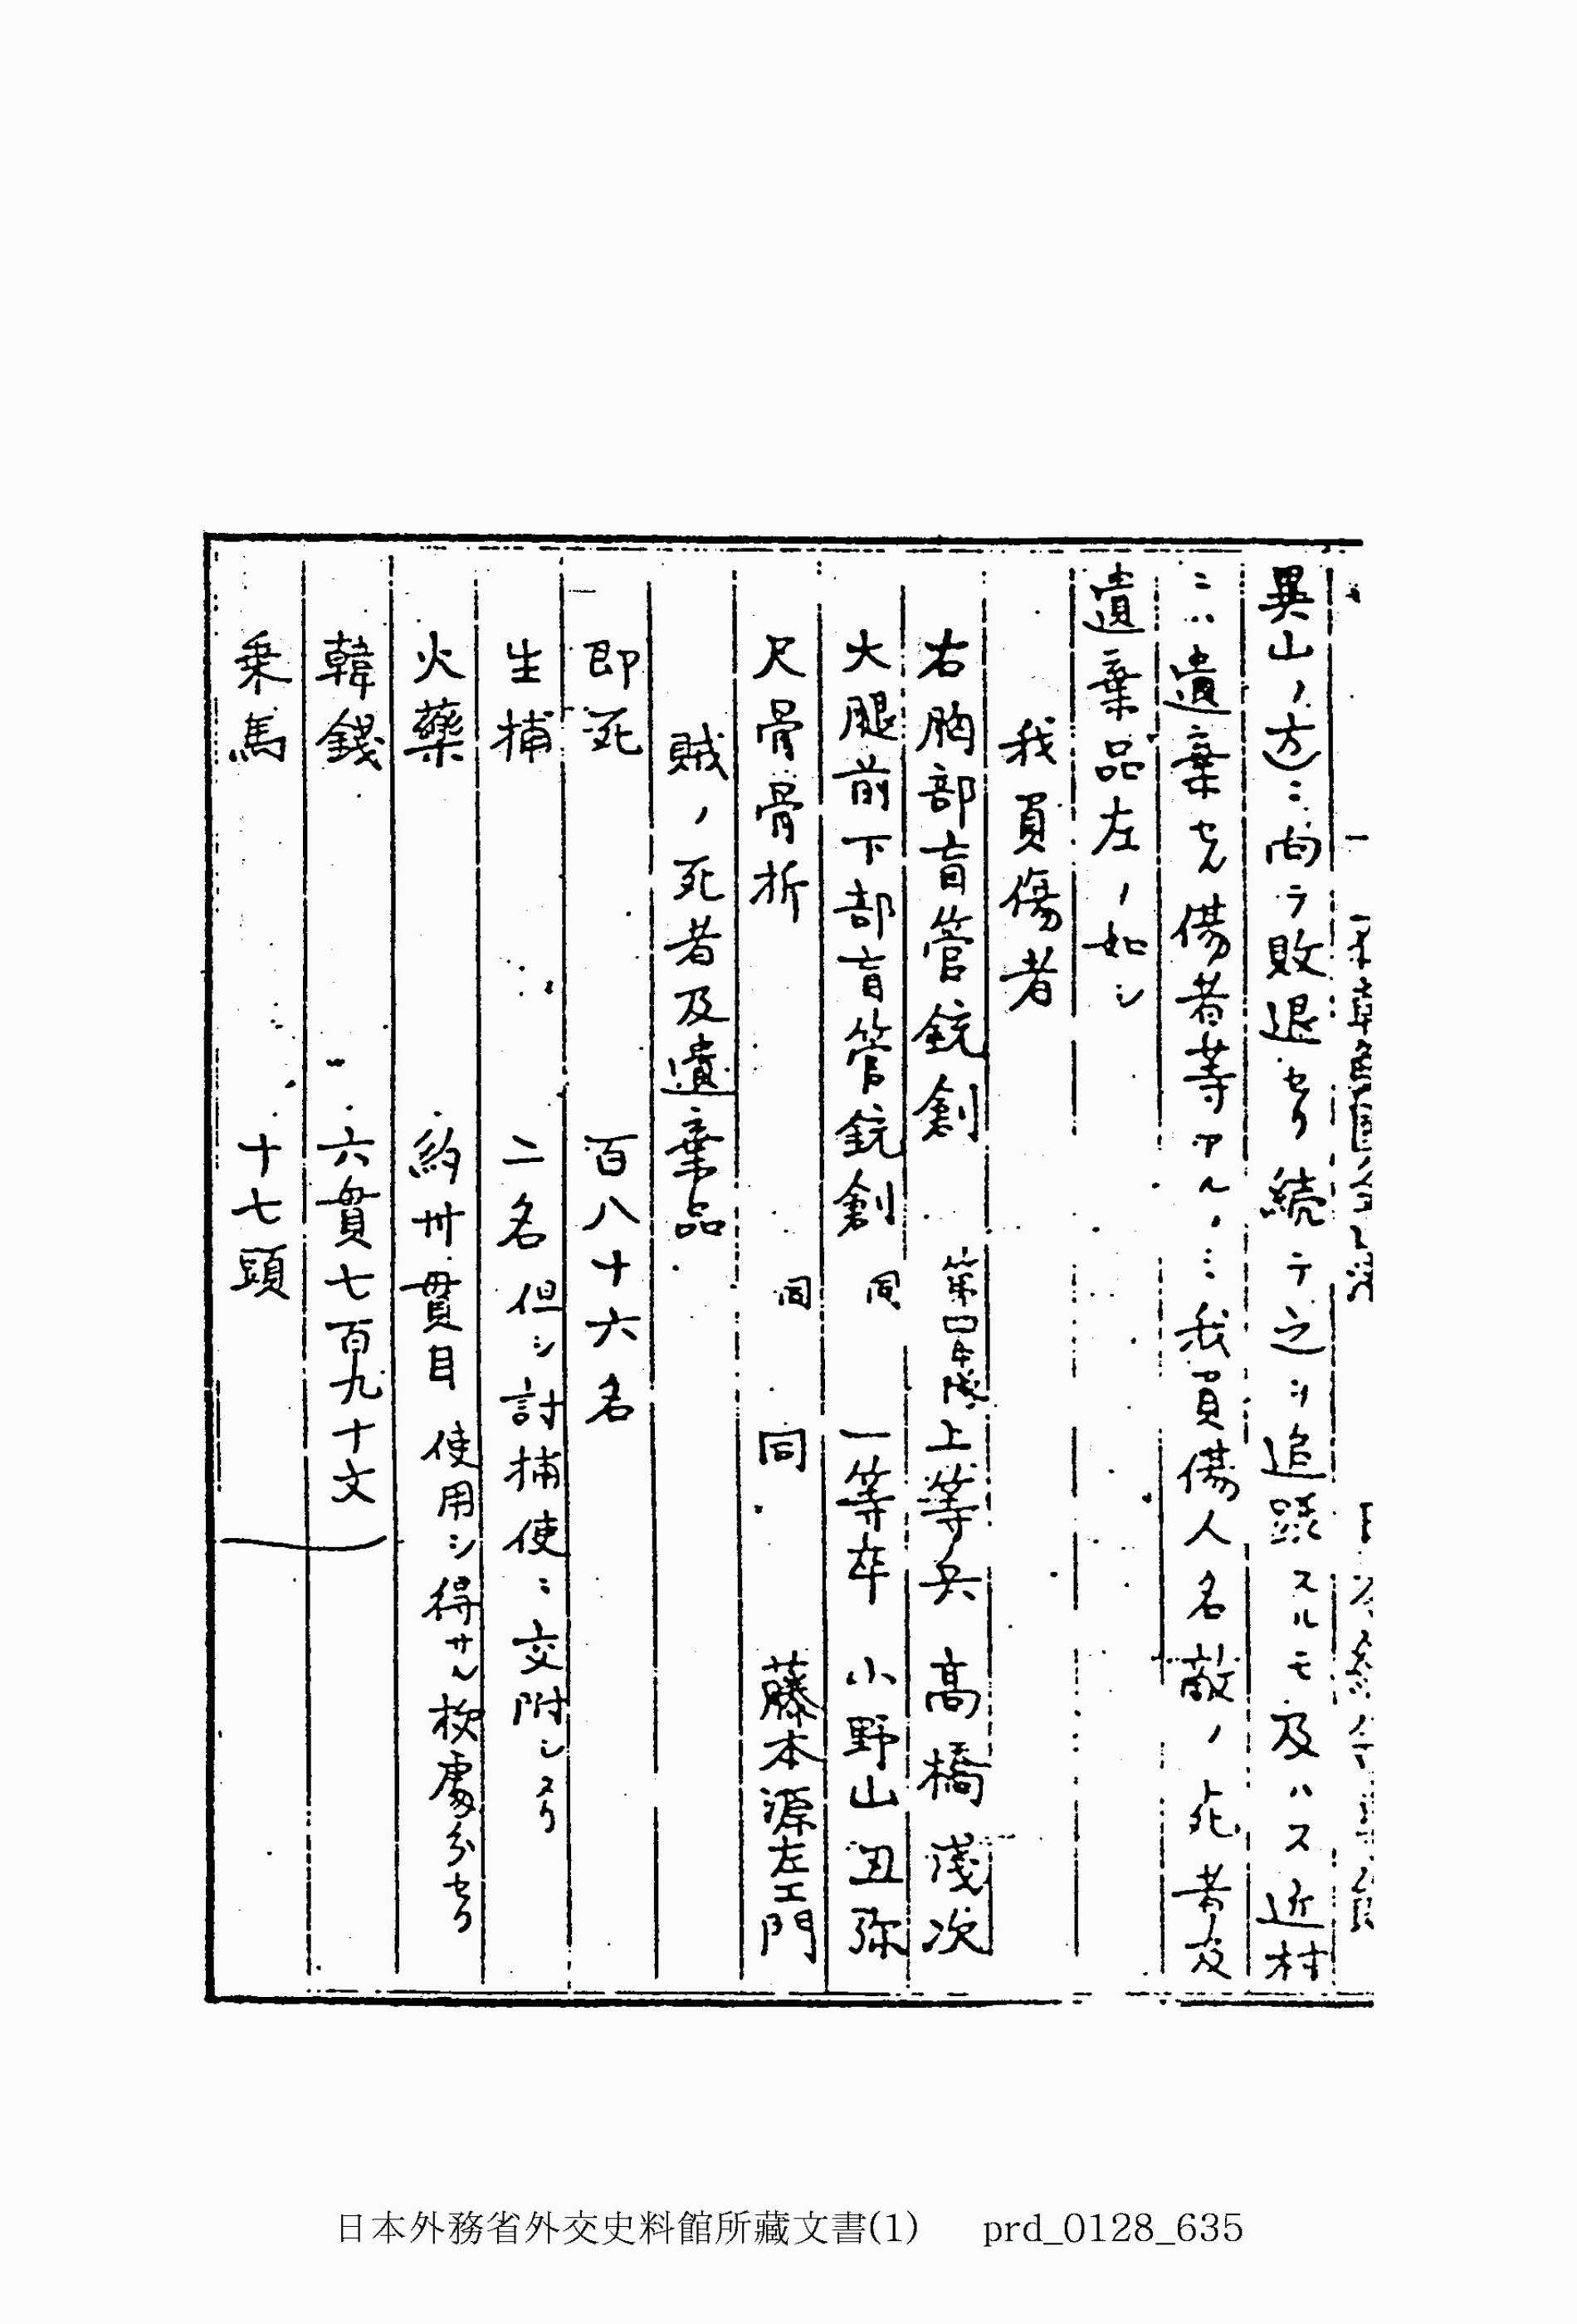 異山ノ方ニ向テ敗退セリ続テ之ヲ追躡スルモ及ハス近村
ニハ遺棄セル傷者等アル、ミ我負傷人名敵ノ死者及
遺棄品左ノ如シ
我負傷者
右胸部盲管銃創 第四中隊上等兵 高橋浅次
大腿前下部盲管銃創 同 一等卒 小野山丑弥
尺骨骨折 同 同 藤本源左エ門
賊ノ死者及遺棄品
即死 百八十六名
生捕 二名 但シ討捕使ニ交附シタリ
火藥 約卅貫目 使用シ得サル様處分セリ
韓錢 六貫七百九十文
乗馬 十七頭
日本外務省外交史料館所藏文書(1) prd_0128_635